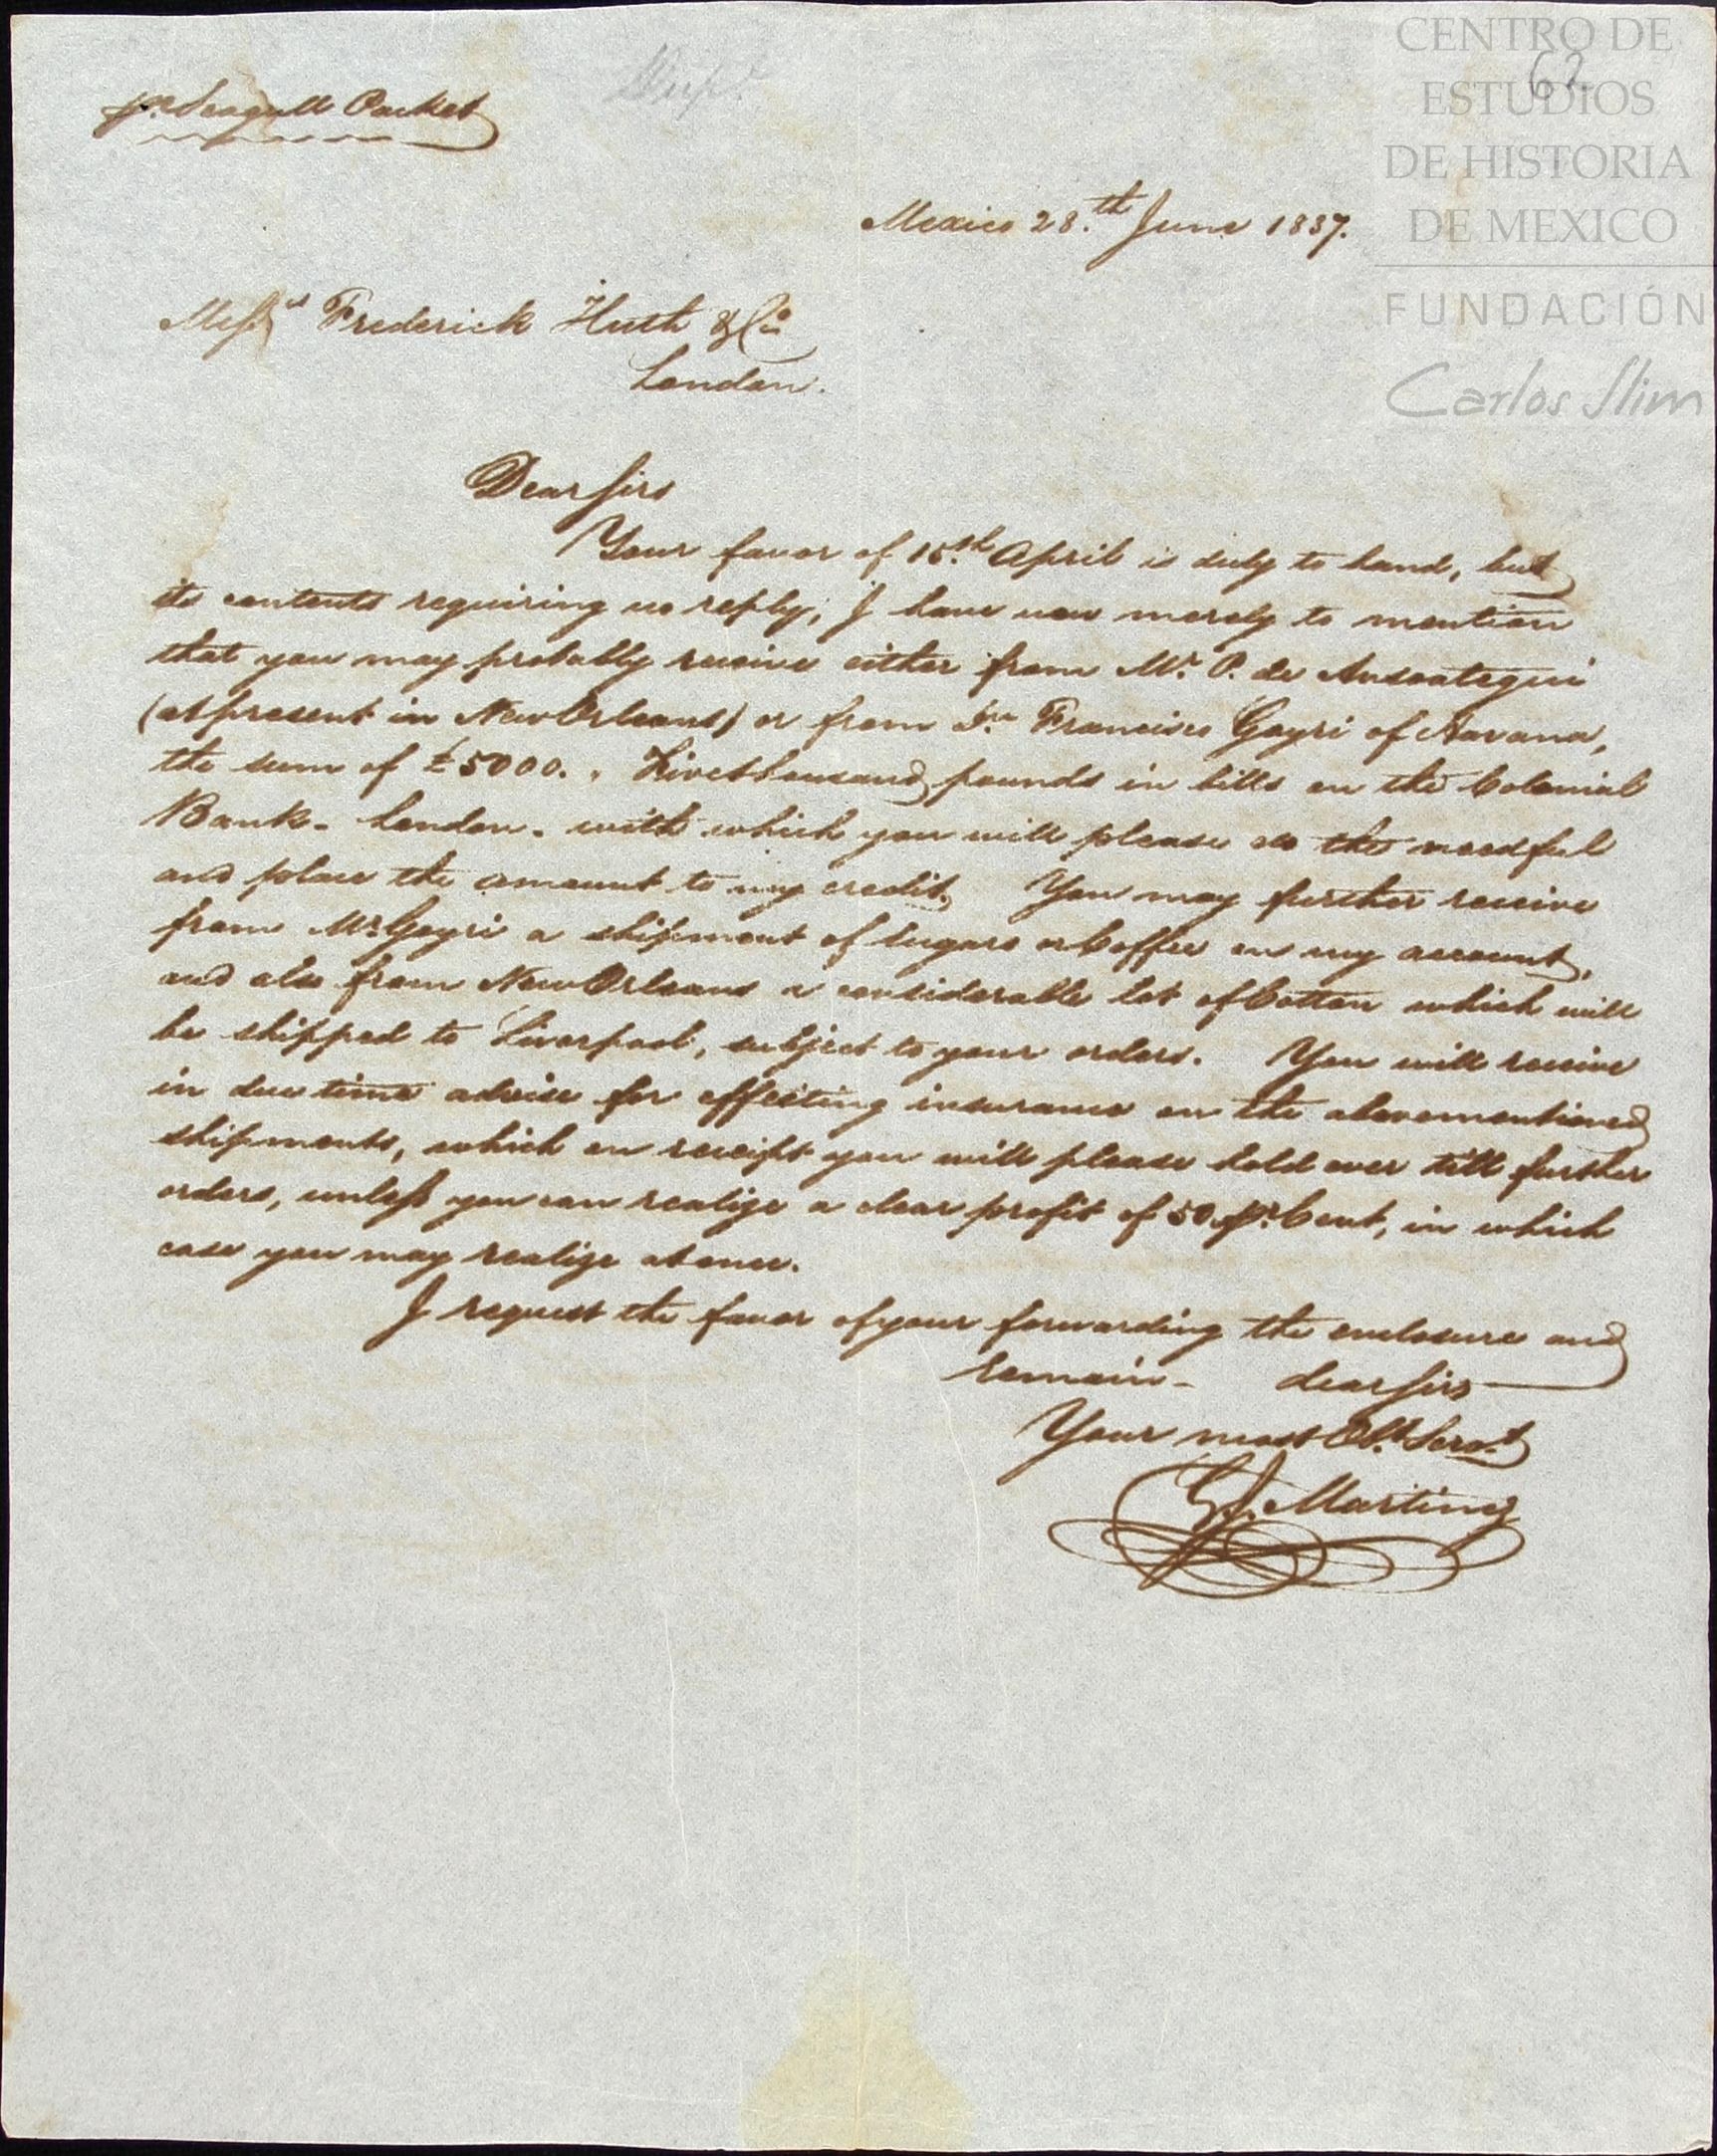 pr. Seagull Packet
62
CENTRO DE
ESTUDIOS
DE HISTORIA
DE MEXICO
FUNDACIÓN
Carlos Slim
Mexico 28.th June 1837.
Messrs Frederick Huth & Co
London.
Dear Sirs
Your favor of 15.th April is duly to hand, but
its contents requiring no reply, I have now merely to mention
that you may probably receive either from Mr. P. de Ansoategui
(at present in New Orleans) or from Dn. Francisco Goyri of Havana,
the sum of £5000. , Five thousand pounds in bills on the Colonial
Bank - London - with which you will please do the needful
and place the amount to my credit, You may further receive
from Mr. Goyri a shipment of Sugars or Coffee on my account,
and also from New Orleans a considerable lot of Cotton which will
be shipped to Liverpool, subject to your orders. You will receive
in due time advise for effecting insurance on the abovementioned
shipments, which on receipt you will please hold over till further
orders, unless you can realize a clear profit of 50 pr. Cent, in which
case you may realize at once.
I request the favor of your forwarding the enclosure and
remain - dear Sirs
Your most Obt. Servt
Martinez